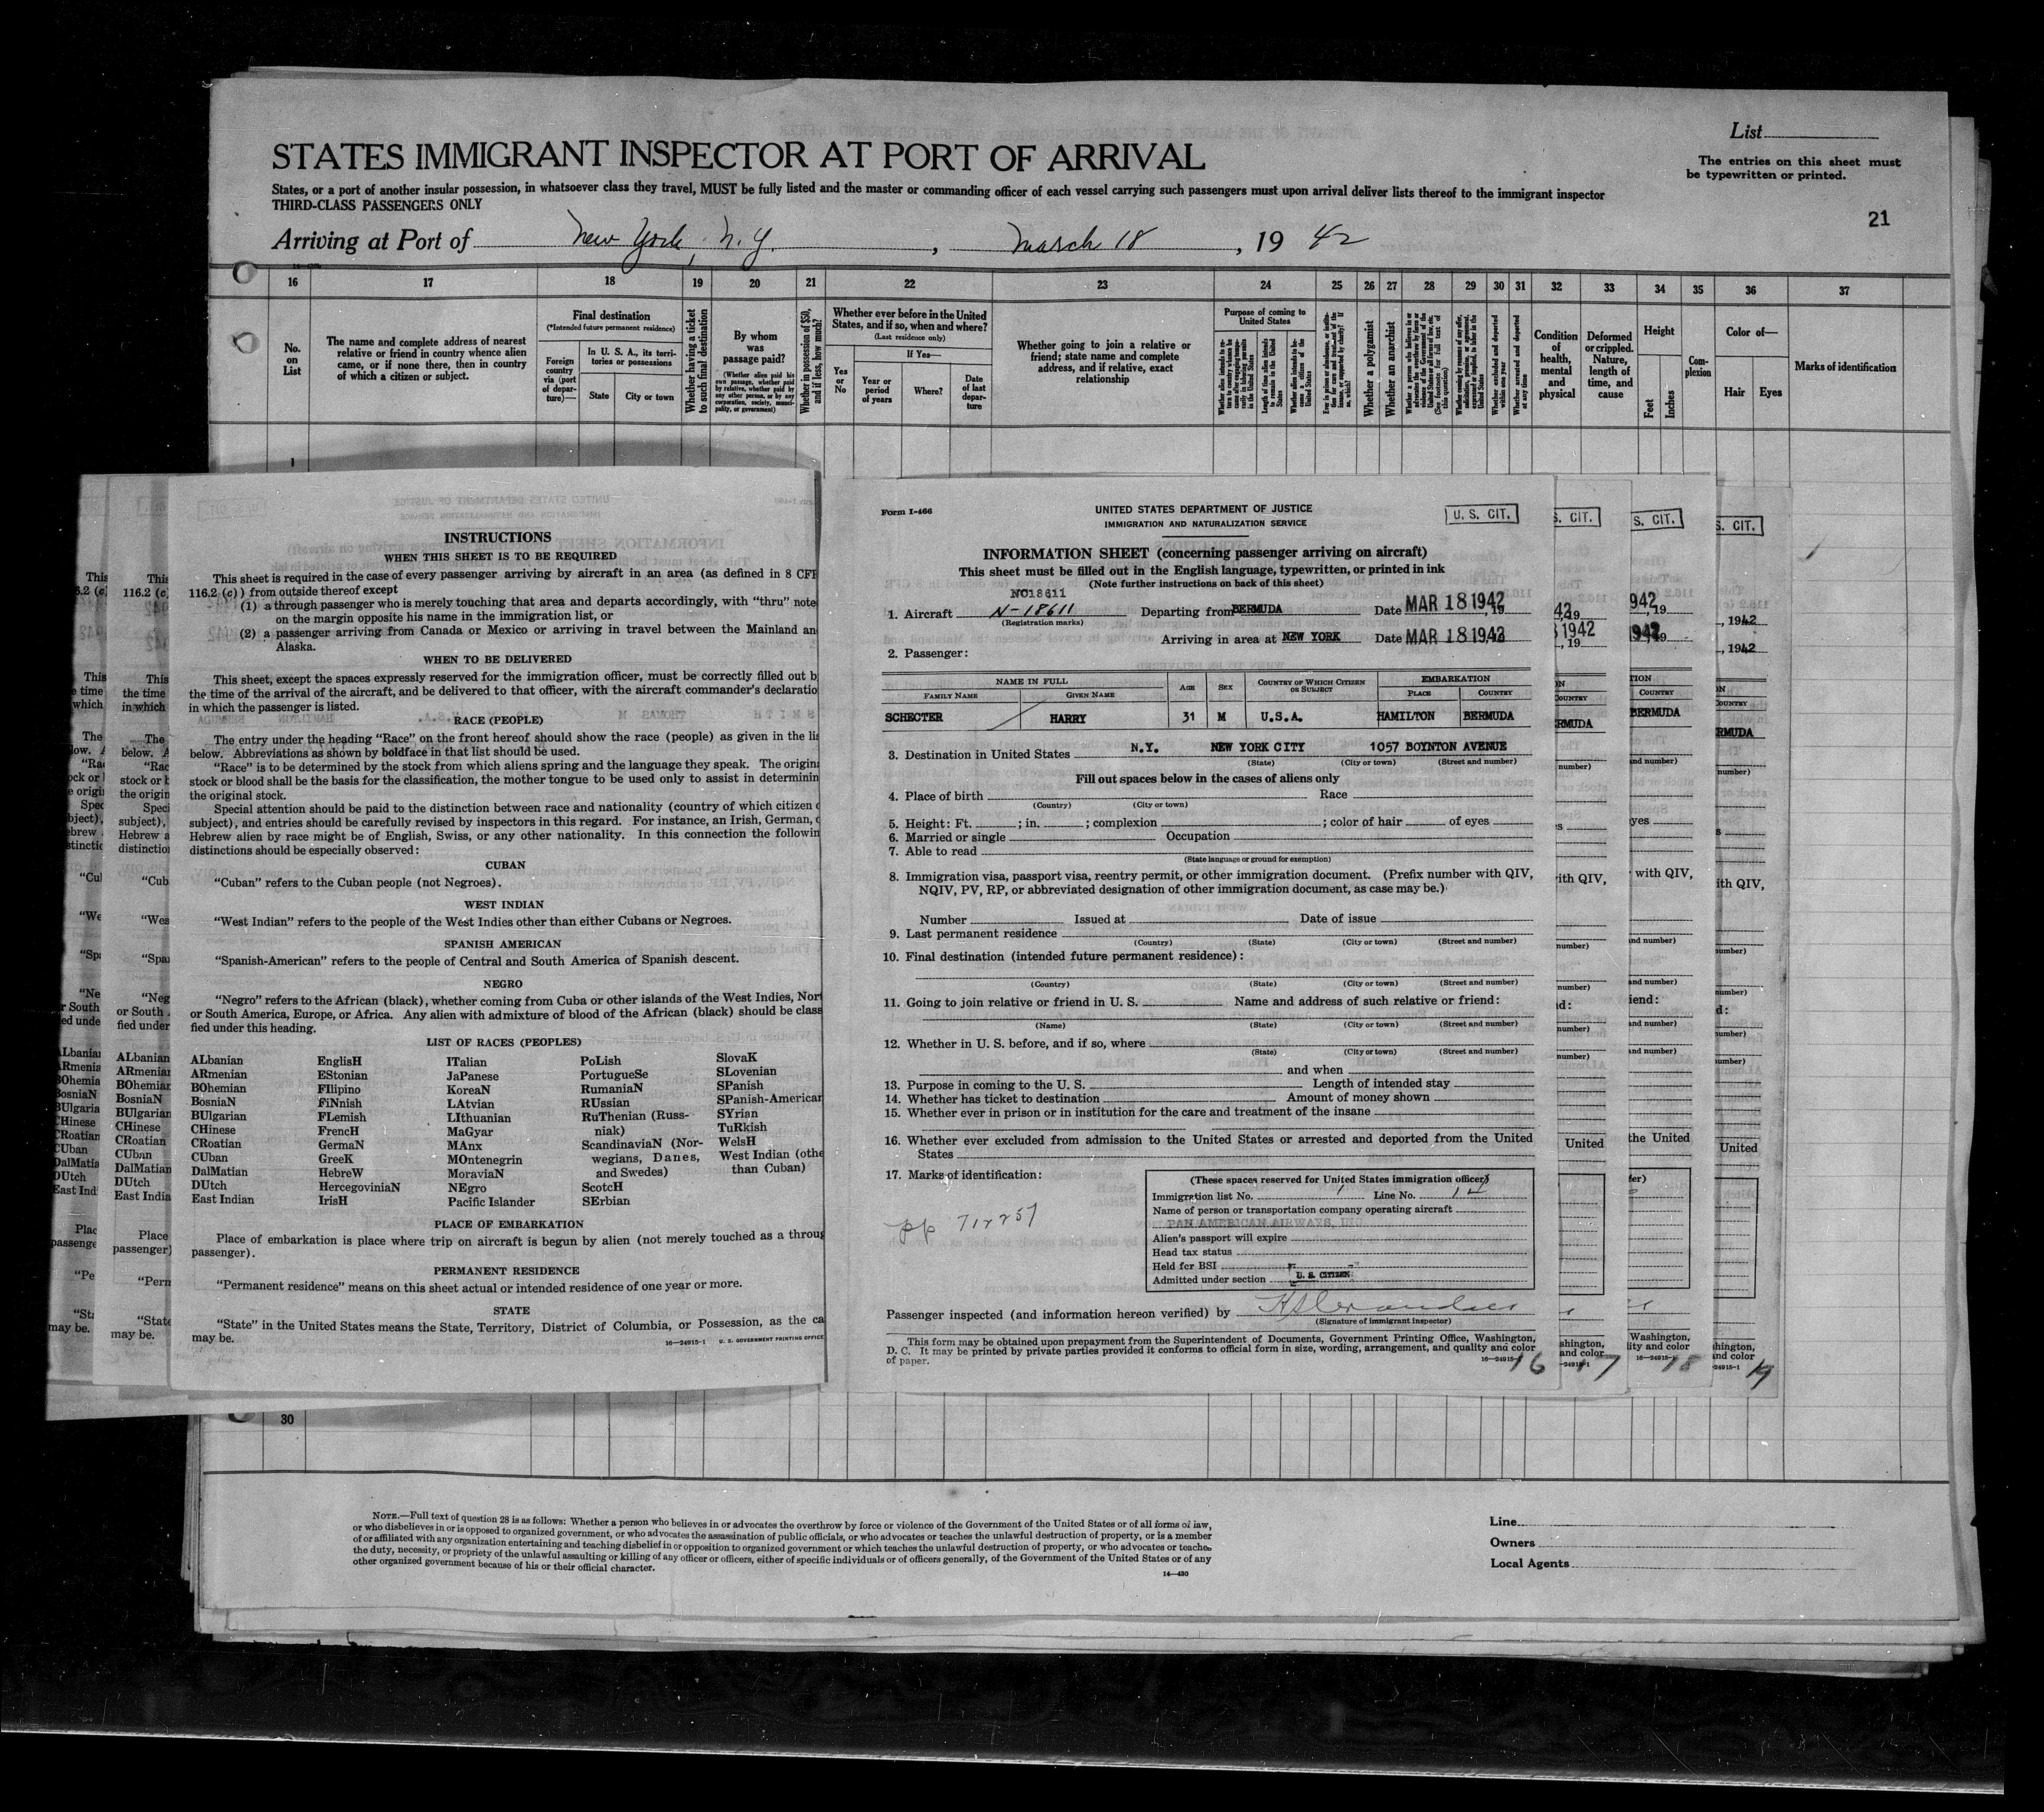 List
STATES IMMIGRANT INSPECTOR AT PORT OF ARRIVAL
The entries on this sheet must
be typewritten or printed.
States, or a port of another insular possession, in whatsoever class they travel, MUST be fully listed and the master or commanding officer of each vessel carrying such passengers must upon arrival deliver lists thereof to the immigrant inspector
THIRD-CLASS PASSENGERS ONLY
21
Arriving at Port of New York, N.Y. , March 18 , 19 42
16 17 18 19 20 21 22 23 24 25 26 27 28 29 30 31 32 33 34 35 36 37
No. on List
The name and complete address of nearest relative or friend in country whence alien came, or if none there, then in country of which a citizen or subject.
Final destination
(*Intended future permanent residence)
Foreign country via (port of departure)—
In U. S. A., its territories or possessions
State
City or town
Whether having a ticket to such final destination
By whom was passage paid?
(Whether alien paid his own passage, whether paid by relative, whether paid by any other person, or by any corporation, society, municipality, or government)
Whether in possession of $50, and if less, how much?
Whether ever before in the United States, and if so, when and where?
(Last residence only)
Yes or No
If Yes—
Year or period of years
Where?
Date of last departure
Whether going to join a relative or friend; state name and complete address, and if relative, exact relationship
Purpose of coming to United States
Whether a polygamist
Whether an anarchist
Whether excluded and deported within one year
Whether arrested and deported at any time
Condition of health, mental and physical
Deformed or crippled. Nature, length of time, and cause
Height
Feet
Inches
Complexion
Color of—
Hair
Eyes
Marks of identification
1
INSTRUCTIONS
WHEN THIS SHEET IS TO BE REQUIRED
This sheet is required in the case of every passenger arriving by aircraft in an area (as defined in 8 CFR
116.2 (c)) from outside thereof except
(1) a through passenger who is merely touching that area and departs accordingly, with "thru" note
on the margin opposite his name in the immigration list, or
(2) a passenger arriving from Canada or Mexico or arriving in travel between the Mainland an
Alaska.
WHEN TO BE DELIVERED
This sheet, except the spaces expressly reserved for the immigration officer, must be correctly filled out b
the time of the arrival of the aircraft, and be delivered to that officer, with the aircraft commander's declaratio
in which the passenger is listed.
RACE (PEOPLE)
The entry under the heading "Race" on the front hereof should show the race (people) as given in the lis
below. Abbreviations as shown by boldface in that list should be used.
"Race" is to be determined by the stock from which aliens spring and the language they speak. The origina
stock or blood shall be the basis for the classification, the mother tongue to be used only to assist in determinin
the original stock.
Special attention should be paid to the distinction between race and nationality (country of which citizen o
subject), and entries should be carefully revised by inspectors in this regard. For instance, an Irish, German, o
Hebrew alien by race might be of English, Swiss, or any other nationality. In this connection the followin
distinctions should be especially observed:
CUBAN
"Cuban" refers to the Cuban people (not Negroes).
WEST INDIAN
"West Indian" refers to the people of the West Indies other than either Cubans or Negroes.
SPANISH AMERICAN
"Spanish-American" refers to the people of Central and South America of Spanish descent.
NEGRO
"Negro" refers to the African (black), whether coming from Cuba or other islands of the West Indies, Nort
or South America, Europe, or Africa. Any alien with admixture of blood of the African (black) should be class
fied under this heading.
LIST OF RACES (PEOPLES)
ALbanian
ARmenian
BOhemian
BosniaN
BUlgarian
CHinese
CRoatian
CUban
DalMatian
DUtch
East Indian
EnglisH
EStonian
FIlipino
FiNnish
FLemish
FrencH
GermaN
GreeK
HebreW
HercegoviniaN
IrisH
ITalian
JaPanese
KoreaN
LAtvian
LIthuanian
MaGyar
MAnx
MOntenegrin
MoraviaN
NEgro
Pacific Islander
PoLish
PortugueSe
RumaniaN
RUssian
RuThenian (Russ-
niak)
ScandinaviaN (Nor-
wegians, Danes,
and Swedes)
ScotcH
SErbian
SlovaK
SLovenian
SPanish
SPanish-American
SYrian
TuRkish
WelsH
West Indian (othe
than Cuban)
PLACE OF EMBARKATION
Place of embarkation is place where trip on aircraft is begun by alien (not merely touched as a throug
passenger).
PERMANENT RESIDENCE
"Permanent residence" means on this sheet actual or intended residence of one year or more.
STATE
"State" in the United States means the State, Territory, District of Columbia, or Possession, as the ca
may be.
16—24915-1 U. S. GOVERNMENT PRINTING OFFICE
Form I-466
UNITED STATES DEPARTMENT OF JUSTICE
IMMIGRATION AND NATURALIZATION SERVICE
U. S. CIT.
INFORMATION SHEET (concerning passenger arriving on aircraft)
This sheet must be filled out in the English language, typewritten, or printed in ink
(Note further instructions on back of this sheet)
NC18611
1. Aircraft N-18611 Departing from BERMUDA Date MAR 18 1942
(Registration marks)
Arriving in area at NEW YORK Date MAR 18 1942
2. Passenger:
NAME IN FULL
FAMILY NAME
GIVEN NAME
AGE
SEX
COUNTRY OF WHICH CITIZEN OR SUBJECT
EMBARKATION
PLACE
COUNTRY
SCHECTER HARRY 31 M U.S.A. HAMILTON BERMUDA
3. Destination in United States N.Y. NEW YORK CITY 1057 BOYNTON AVENUE
(State) (City or town) (Street and number)
Fill out spaces below in the cases of aliens only
4. Place of birth Race
(Country) (City or town)
5. Height: Ft. ; in. ; complexion ; color of hair of eyes
6. Married or single Occupation
7. Able to read
(State language or ground for exemption)
8. Immigration visa, passport visa, reentry permit, or other immigration document. (Prefix number with QIV,
NQIV, PV, RP, or abbreviated designation of other immigration document, as case may be.)
Number Issued at Date of issue
9. Last permanent residence
(Country) (State) (City or town) (Street and number)
10. Final destination (intended future permanent residence):
(Country) (State) (City or town) (Street and number)
11. Going to join relative or friend in U. S. Name and address of such relative or friend:
(Name) (State) (City or town) (Street and number)
12. Whether in U. S. before, and if so, where
(State) (City or town) (Street and number)
and when
13. Purpose in coming to the U. S. Length of intended stay
14. Whether has ticket to destination Amount of money shown
15. Whether ever in prison or in institution for the care and treatment of the insane
16. Whether ever excluded from admission to the United States or arrested and deported from the United
States
17. Marks of identification:
(These spaces reserved for United States immigration officer)
Immigration list No. 1 Line No.
Name of person or transportation company operating aircraft
PAN AMERICAN AIRWAYS, INC.
Alien's passport will expire
Head tax status
Held for BSI
Admitted under section U. S. CITIZEN
Passenger inspected (and information hereon verified) by
(Signature of immigrant inspector)
This form may be obtained upon prepayment from the Superintendent of Documents, Government Printing Office, Washington,
D. C. It may be printed by private parties provided it conforms to official form in size, wording, arrangement, and quality and color
of paper.
16—24915-1
16 17 18 19
30
NOTE.—Full text of question 28 is as follows: Whether a person who believes in or advocates the overthrow by force or violence of the Government of the United States or of all forms of law,
or who disbelieves in or is opposed to organized government, or who advocates the assassination of public officials, or who advocates or teaches the unlawful destruction of property, or is a member
of or affiliated with any organization entertaining and teaching disbelief in or opposition to organized government or which teaches the unlawful destruction of property, or who advocates or teaches
the duty, necessity, or propriety of the unlawful assaulting or killing of any officer or officers, either of specific individuals or of officers generally, of the Government of the United States or of any
other organized government because of his or their official character.
14—430
Line
Owners
Local Agents